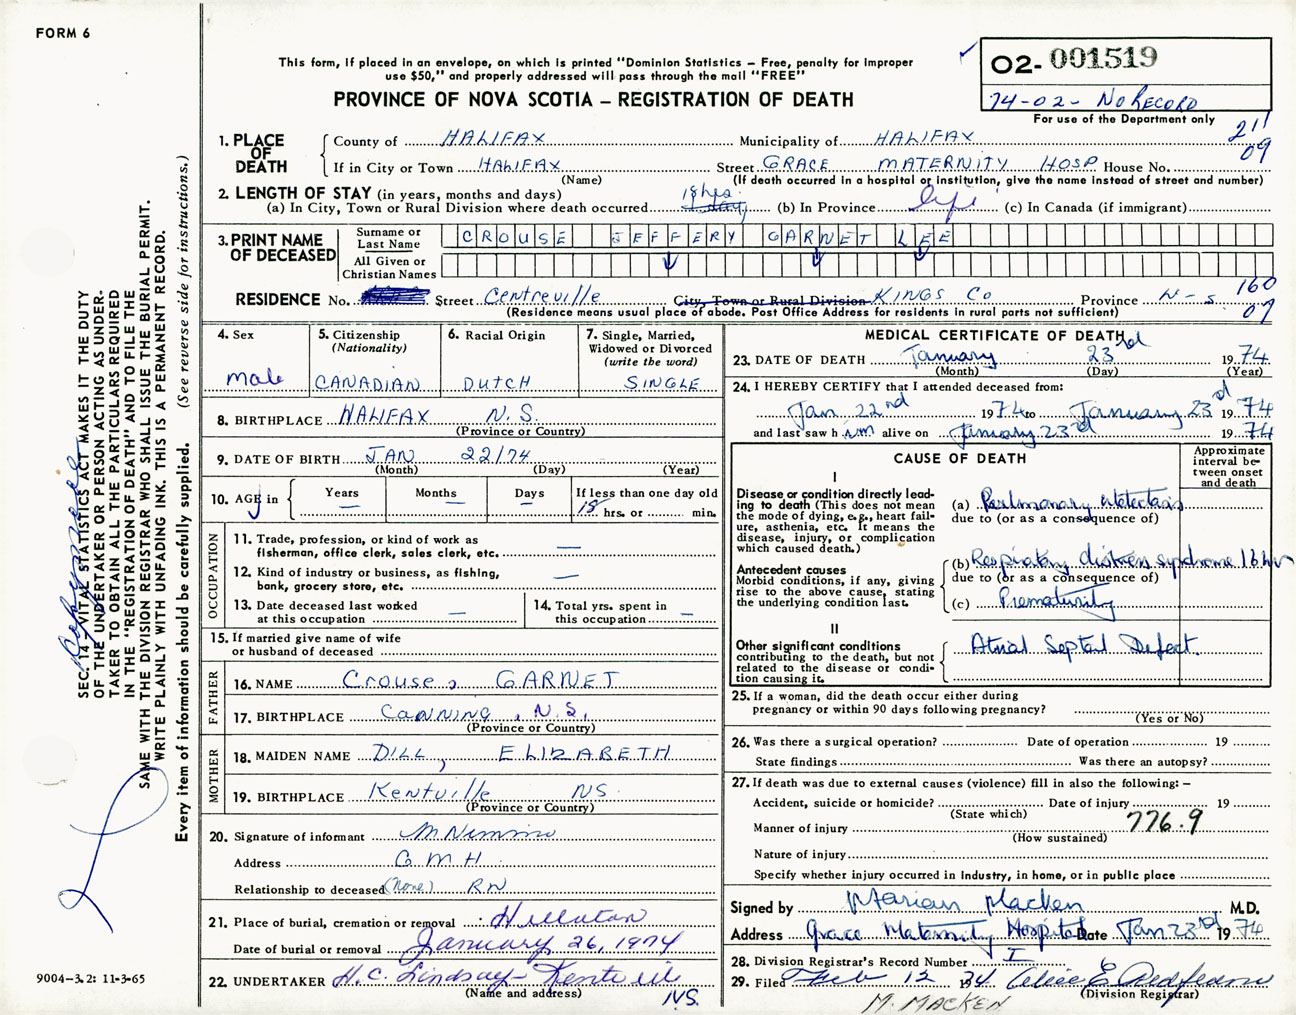 FORM 6
This form, if placed in an envelope, on which is printed "Dominion Statistics – Free, penalty for improper
use $50," and properly addressed will pass through the mail "FREE"
PROVINCE OF NOVA SCOTIA – REGISTRATION OF DEATH
02- 001519
74-02- NO RECORD
For use of the Department only
211
09
1. PLACE OF DEATH
County of HALIFAX Municipality of HALIFAX
If in City or Town HALIFAX Street GRACE MATERNITY HOSP House No.
(Name) (If death occurred in a hospital or institution, give the name instead of street and number)
2. LENGTH OF STAY (in years, months and days) 18 hrs.
(a) In City, Town or Rural Division where death occurred 1 day (b) In Province life (c) In Canada (if immigrant)
3. PRINT NAME OF DECEASED
Surname or Last Name CROUSE JEFFERY GARNET LEE
All Given or Christian Names
RESIDENCE No. Street Centreville City, Town or Rural Division KINGS Co Province N-S
160
07
(Residence means usual place of abode. Post Office Address for residents in rural parts not sufficient)
4. Sex
male
5. Citizenship (Nationality)
CANADIAN
6. Racial Origin
DUTCH
7. Single, Married, Widowed or Divorced (write the word)
SINGLE
8. BIRTHPLACE HALIFAX N.S.
(Province or Country)
9. DATE OF BIRTH JAN 22/74
(Month) (Day) (Year)
10. AGE in Years — Months — Days — If less than one day old
18 hrs. or min.
OCCUPATION
11. Trade, profession, or kind of work as
fisherman, office clerk, sales clerk, etc. —
12. Kind of industry or business, as fishing,
bank, grocery store, etc. —
13. Date deceased last worked
at this occupation —
14. Total yrs. spent in
this occupation —
15. If married give name of wife
or husband of deceased
FATHER
16. NAME Crouse, GARNET
17. BIRTHPLACE CANNING, N.S.
(Province or Country)
MOTHER
18. MAIDEN NAME DILL, ELIZABETH
19. BIRTHPLACE Kentville NS.
(Province or Country)
20. Signature of informant M Nimmo
Address G M H
Relationship to deceased (None) RN
21. Place of burial, cremation or removal : Hillaton
Date of burial or removal January 26, 1974
22. UNDERTAKER H.C. Lindsay – Kentville
(Name and address) N.S.
MEDICAL CERTIFICATE OF DEATH
23. DATE OF DEATH January 23rd 1974
(Month) (Day) (Year)
24. I HEREBY CERTIFY that I attended deceased from:
Jan 22nd 1974 to January 23rd 1974
and last saw him alive on January 23rd 1974
CAUSE OF DEATH
Approximate interval between onset and death
I
Disease or condition directly leading to death (This does not mean the mode of dying, e.g., heart failure, asthenia, etc. It means the disease, injury, or complication which caused death.)
(a) Pulmonary atelectasis
due to (or as a consequence of)
Antecedent causes
Morbid conditions, if any, giving rise to the above cause, stating the underlying condition last.
(b) Respiratory distress syndrome 16 hr
due to (or as a consequence of)
(c) Prematurity
II
Other significant conditions
contributing to the death, but not related to the disease or condition causing it.
Atrial Septal Defect.
25. If a woman, did the death occur either during
pregnancy or within 90 days following pregnancy?
(Yes or No)
26. Was there a surgical operation? Date of operation 19
State findings Was there an autopsy?
27. If death was due to external causes (violence) fill in also the following: –
Accident, suicide or homicide? Date of injury 19
(State which)
Manner of injury 776.9
(How sustained)
Nature of injury
Specify whether injury occurred in Industry, in home, or in public place
Signed by Marian Macken M.D.
Address Grace Maternity Hospital Date Jan 23rd 1974
28. Division Registrar's Record Number I
29. Filed Feb 12 1974 Alice E Redfearn
(Division Registrar)
M. MACKEN
SEC. 14 – VITAL STATISTICS ACT MAKES IT THE DUTY
OF THE UNDERTAKER OR PERSON ACTING AS UNDER-
TAKER TO OBTAIN ALL THE PARTICULARS REQUIRED
IN THE "REGISTRATION OF DEATH" AND TO FILE THE
SAME WITH THE DIVISION REGISTRAR WHO SHALL ISSUE THE BURIAL PERMIT.
WRITE PLAINLY WITH UNFADING INK. THIS IS A PERMANENT RECORD.
Every item of information should be carefully supplied. (See reverse side for instructions.)
9004-3.2: 11-3-65